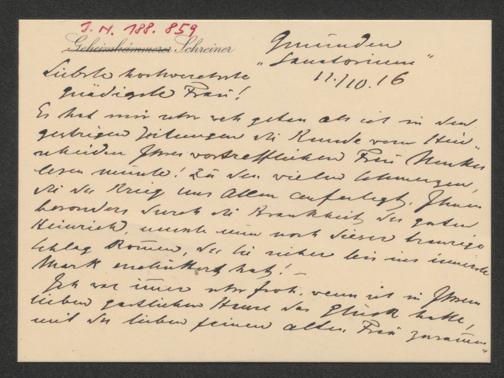 I. N. 188.859
Geheimkämmerer Schreiner
Gmunden
"Sanatorium"
11./10. 16
Liebste hochverehrte
gnädigste Frau!
Es hat mir sehr weh gethan als ich in den
gestrigen Zeitungen die Kunde vom Hin-
scheiden Ihrer vortrefflichen Frau Mutter
lesen musste! Zu den vielen Schmerzen,
die der Krieg uns Allen auferlegt, Ihnen
besonders durch die Krankheit des guten
Heinrich, musste nun noch dieser traurige
Schlag kommen, der Sie sicher bis ins innerste
Mark erschüttert hat!
Ich war immer sehr froh, wenn ich in Ihrem
lieben gastlichen Hause das Glück hatte,
mit der lieben feinen alten Frau zusammen